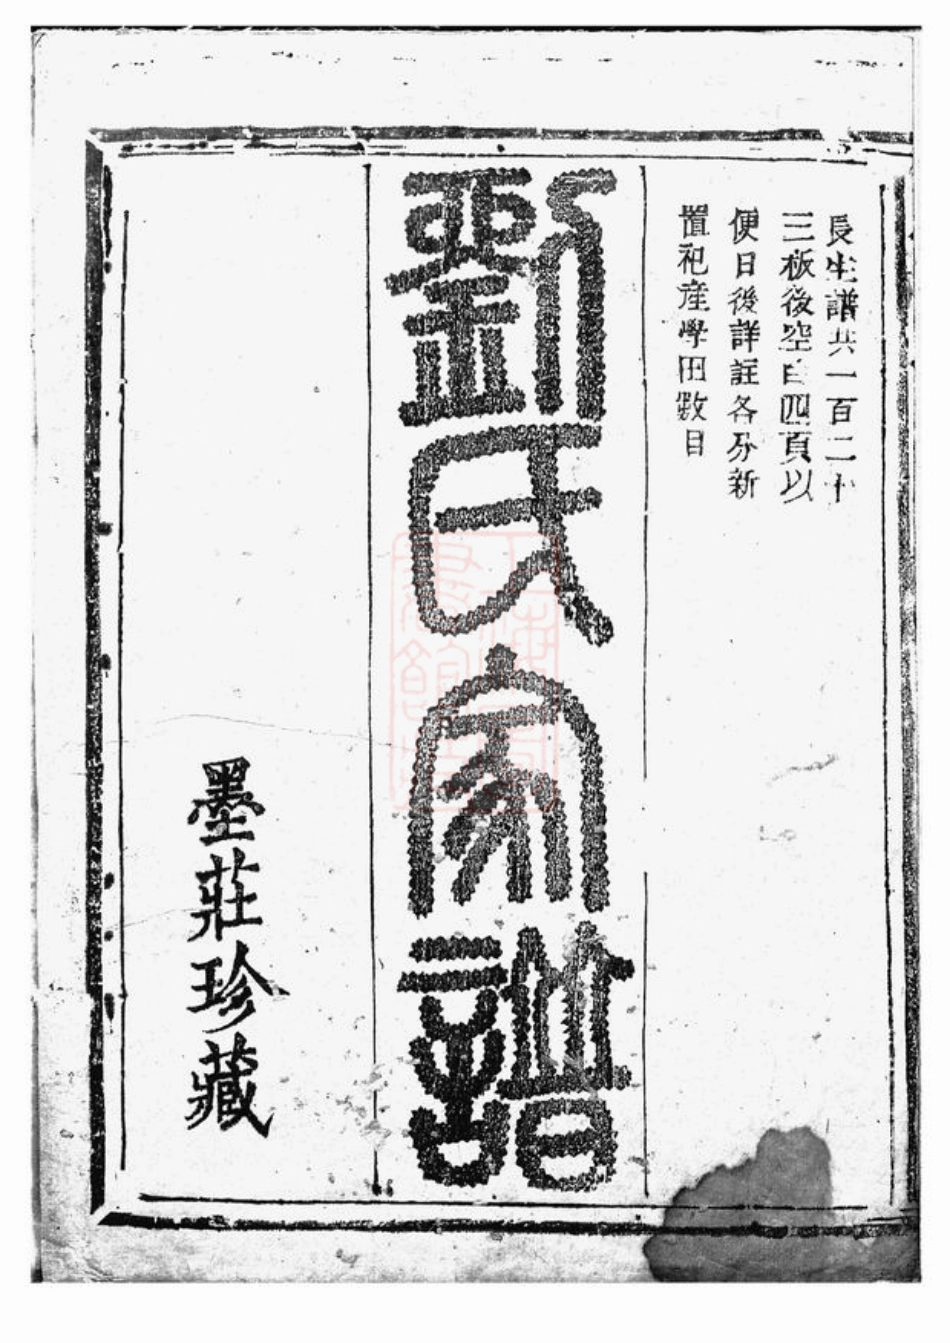 長生譜共一百二十
三板後空白四頁以
便日後詳註各房新
置祀産學田數目
劉氏家譜
墨莊珍藏